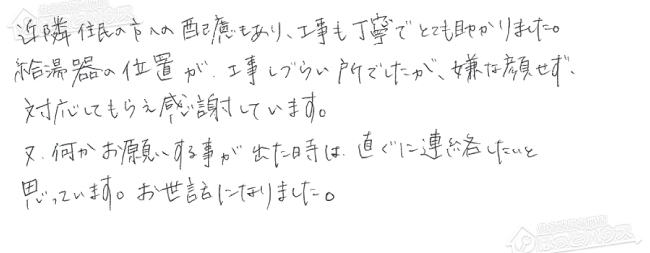 近隣住民の方への配慮もあり、工事も丁寧でとても助かりました。
給湯器の位置が、工事しづらい所でしたが、嫌な顔せず、
対応してもらえ感謝しています。
又、何かお願いする事が出た時は、直ぐに連絡したいと
思っています。お世話になりました。